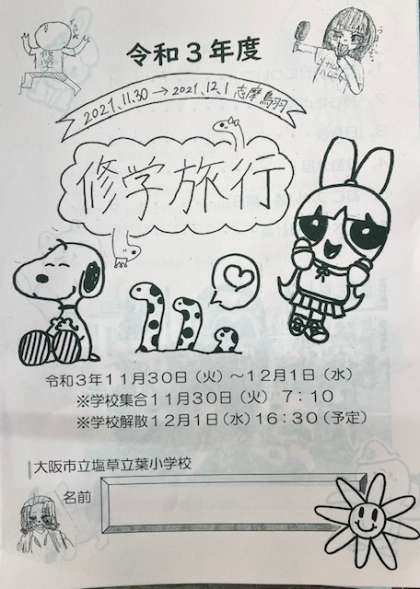 令和３年度
2021.11.30 → 2021.12.1 志摩鳥羽
修学旅行
令和３年１１月３０日（火）～１２月１日（水）
※学校集合１１月３０日（火）７：１０
※学校解散１２月１日（水）１６：３０（予定）
大阪市立塩草立葉小学校
名前